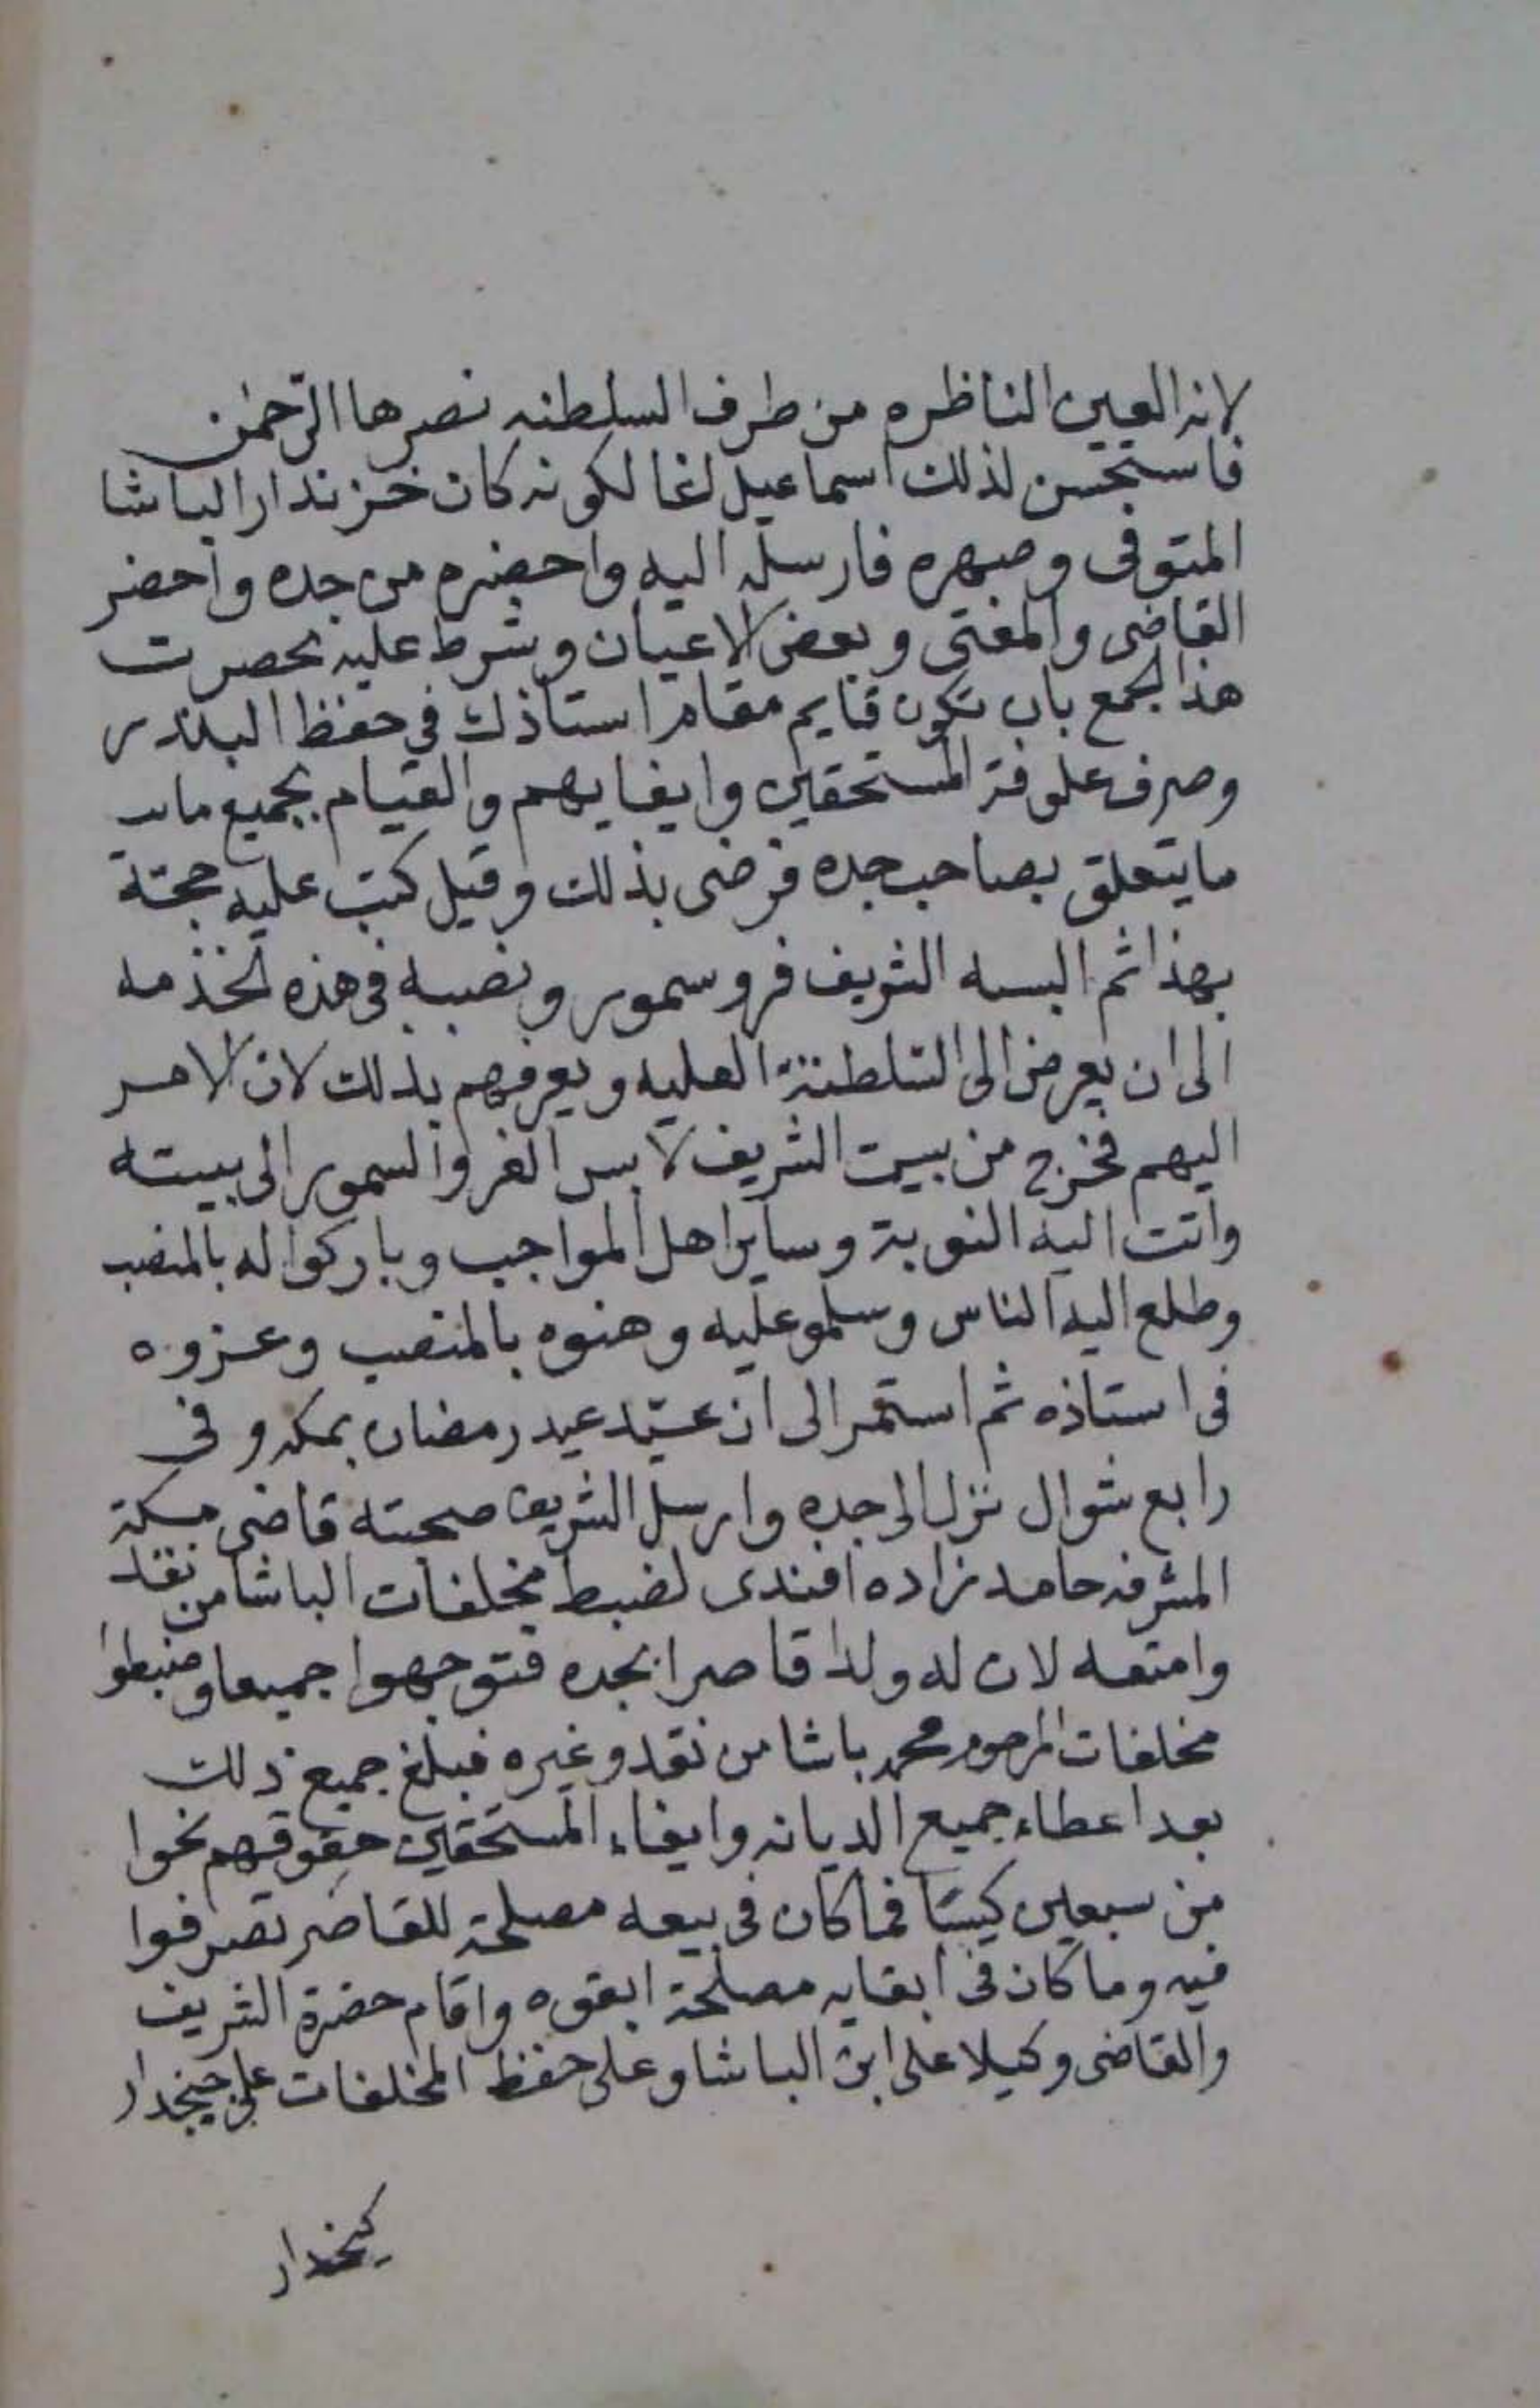 لانه العين الناظره من طرف السلطنه نصرها الرحمن
فاستحسن لذلك اسماعيل اغا لكونه كان خزندار الباشا
المتوفى وصهره فارسله اليه واحضره من جده واحضر
القاضى والمفتى وبعض الاعيان وشرط عليه بحصرت
هذا الجمع بان تكون قايم مقام استاذك في حفظ البندر
وصرف علوفة المستحقين وايفايهم والقيام بجميع ما
ما يتعلق بصاحب جده فرضى بذلك وقيل كتب عليه حجة
بهذا ثم البسه الشريف فرو سمور ونصبه فى هذه الخذمه
الى ان يعرض الى السلطنة العليه ويعرفهم بذلك لان الامر
اليهم فخرج من بيت الشريف لابس الفرو السمور الى بيته
واتت اليه النوبة وساير اهل المواجب وباركوا له بالمنصب
وطلع اليه الناس وسلمو عليه وهنوه بالمنصب وعزوه
فى استاذه ثم استمر الى ان عيّد عيد رمضان بمكه وفى
رابع شوال نزل الى جده وارسل الشريف صحبته قاضى مكة
المشرفه حامد زاده افندى لضبط مخلفات الباشا من نقد
وامتعه لان له ولدا قاصرا بجده فتوجهوا جميعا وضبطوا
مخلفات المرحوم محمد باشا من نقد وغيره فبلغ جميع ذلك
بعد اعطاء جميع الديانه وايفاء المستحقين حقوقهم نحوا
من سبعين كيسًا فما كان فى بيعه مصلحة للقاصر تصرفوا
فيه وما كان فى ابقايه مصلحة ابقوه واقام حضرة الشريف
والقاضى وكيلا على ابن الباشا وعلى حفظ المخلفات على